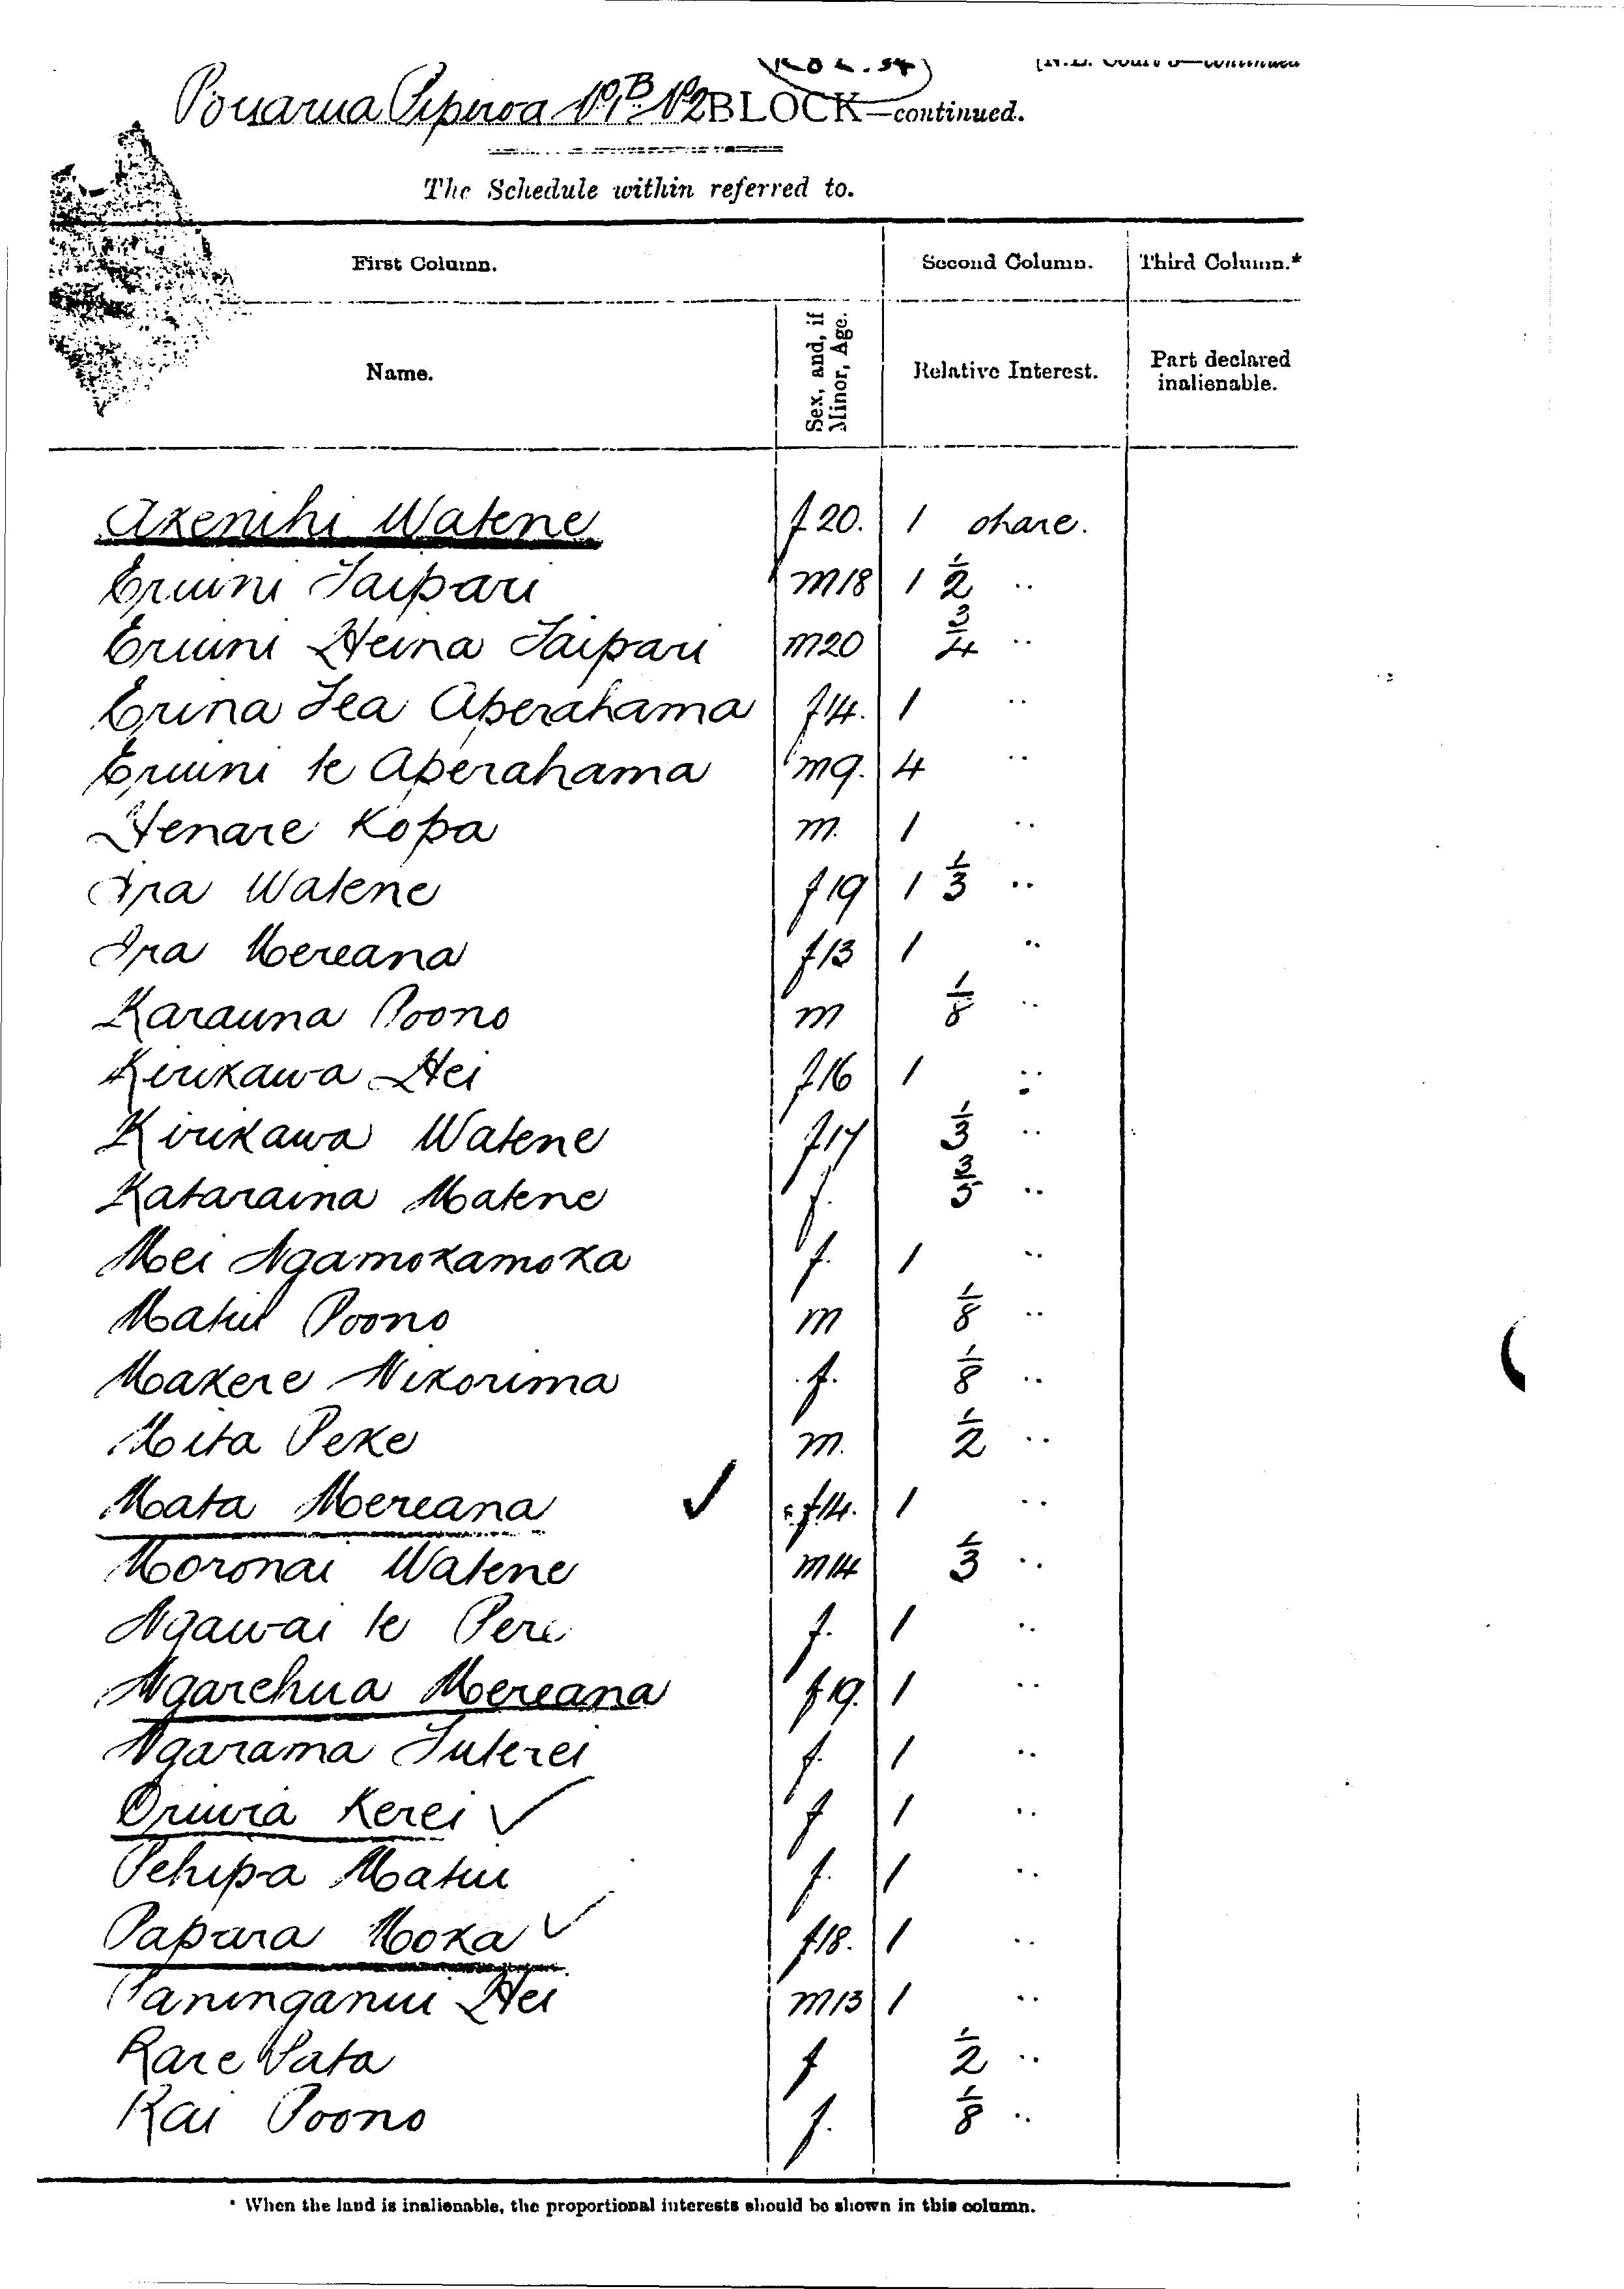 Pouarua Pipiroa No 1B No 2 BLOCK—continued.
The Schedule within referred to.
First Column. Second Column. Third Column.*
Name. Sex, and, if Minor, Age. Relative Interest. Part declared inalienable.
Akenihi Watene f 20. 1 share.
Eruini Taipari m 18 1 1/2 ..
Eruini Heina Taipari m 20 3/4 ..
Erina Tea Aperahama f 14. 1 ..
Eruini te Aperahama m 9. 4 ..
Henare Kopa m. 1 ..
Ira Watene f 19 1 1/3 ..
Ira Mereana f 13 1 ..
Karauna Poono m 1/8 ..
Kirikawa Hei f 16 1 ..
Kirikawa Watene f 17 1/3 ..
Kataraina Matene f. ..
Mei Ngamokamoka f. 1 ..
Matiu Poono m 1/8 ..
Makere Nikorima f. 1/8 ..
Mita Peke m. 1/2 ..
Mata Mereana ✓ f 14. 1 ..
Moronai Watene m 14 1/3 ..
Ngawai te Pere f. 1 ..
Ngarehua Mereana f 19. 1 ..
Ngarama Tuterei f. 1 ..
Oriwia Kerei ✓ f 1 ..
Pehipa Matiu f. 1 ..
Papara Moka ✓ f 18. 1 ..
Paninganui Hei m 13 1 ..
Rare Pata f 1/2 ..
Rai Poono f. 1/8 ..
* When the land is inalienable, the proportional interests should be shown in this column.